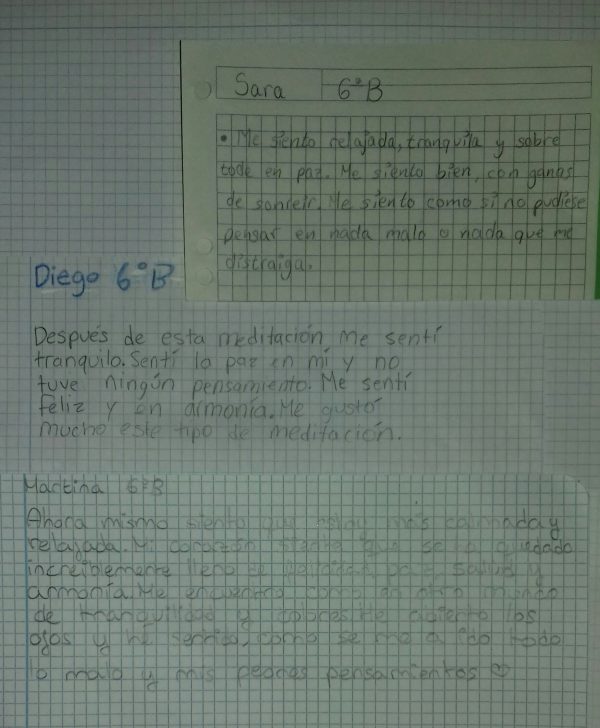 Sara 6ºB
• Me siento relajada, tranquila y sobre
todo en paz. Me siento bien, con ganas
de sonreir. Me siento como si no pudiese
pensar en nada malo o nada que me
distraiga.
Diego 6ºB
Después de esta meditación me sentí
tranquilo. Sentí la paz en mí y no
tuve ningún pensamiento. Me sentí
feliz y en armonía. Me gustó
mucho este tipo de meditación.
Martina 6ºB
Ahora mismo siento que estoy más calmada y
relajada. Mi corazón siente que se ha quedado
increíblemente lleno de paz, salud y
armonía. Me encuentro como en otro mundo
de tranquilidad y colores. He abierto los
ojos y he sentido, como se me a ido todo
lo malo y mis peores pensamientos